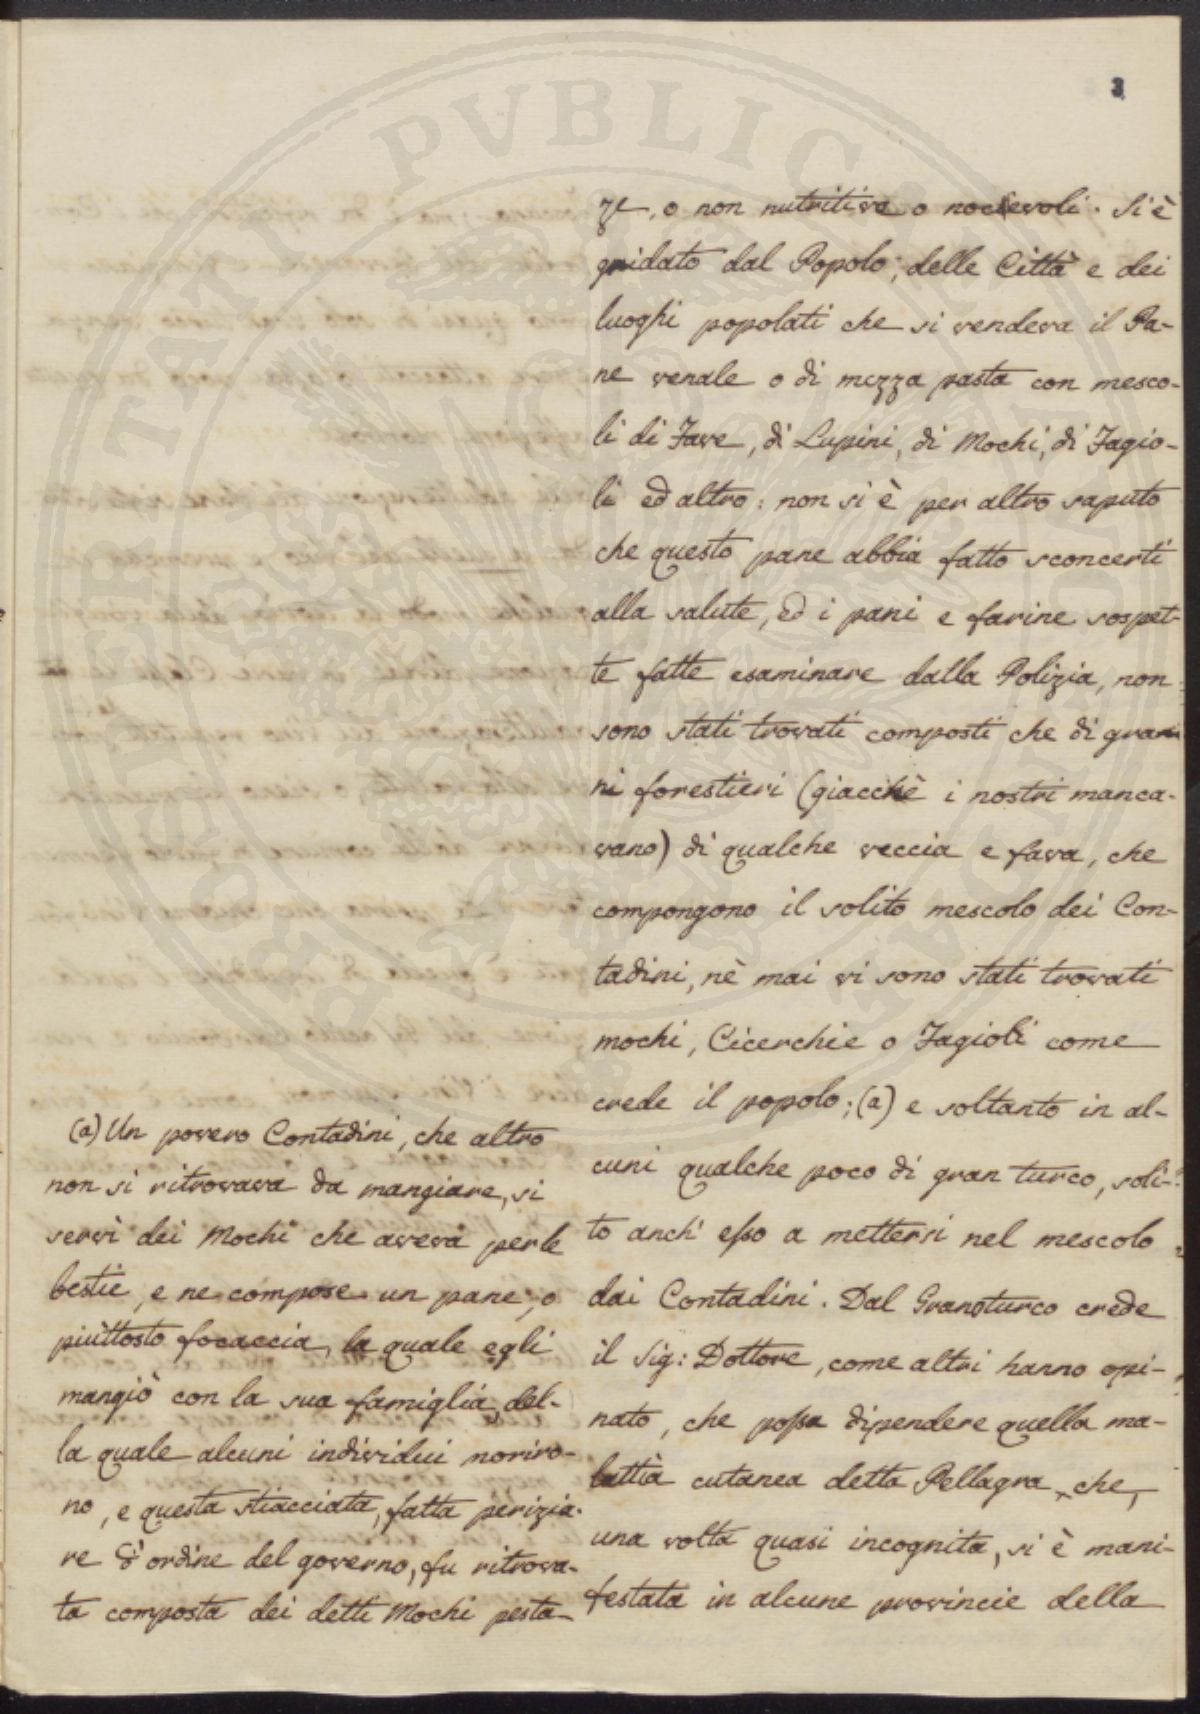 3
ze, o non nutritive o nocievoli. Si è
gridato dal Popolo; delle Città e dei
luoghi popolati che si vendeva il Pa-
ne venale o di mezza pasta con mesco-
li di Fave, di Lupini, di Mochi, di Fagio-
li ed altro: non si è per altro saputo
che questo pane abbia fatto sconcerti
alla salute, ed i pani e farine sospet-
te fatte esaminare dalla Polizia, non
sono stati trovati composti che di grani
ni forestieri (giacchè i nostri manca-
vano) di qualche veccia e fava, che
compongono il solito mescolo dei Con-
tadini, nè mai vi sono stati trovati
mochi, Cicerchie o Fagioli come
crede il popolo; (a) e soltanto in al-
cuni qualche poco di gran turco, soli-
to anch' esso a mettersi nel mescolo
dai Contadini. Dal Granoturco crede
il Sig: Dottore, come altri hanno opi-
nato, che possa dipendere quella ma-
lattia cutanea detta Pellagra, che,
una volta quasi incognita, si è mani-
festata in alcune provincie della
(a) Un povero Contadini, che altro
non si ritrovava da mangiare, si
servì dei Mochi che aveva per le
bestie, e ne compose un pane, o
piuttosto focaccia, la quale egli
mangiò con la sua famiglia, del-
la quale alcuni individui moriro-
no, e questa stiacciata, fatta perizia-
re d'ordine del governo, fu ritrova-
ta composta dei detti Mochi pesta-
PROSPERITATI PVBLICAE